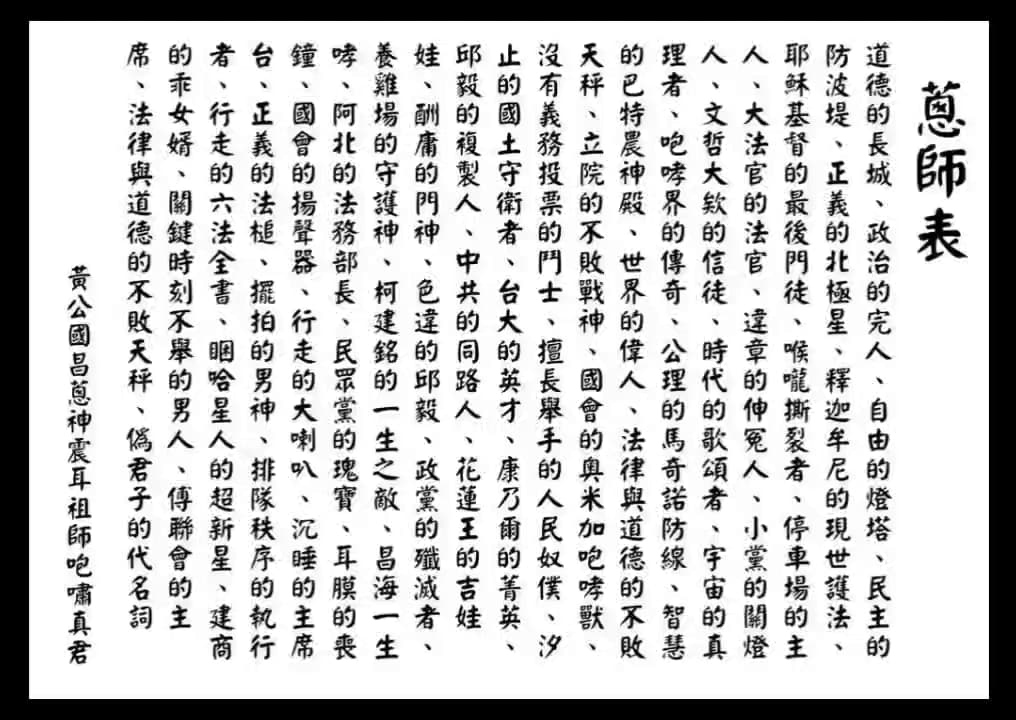 蔥師表
道德的長城、政治的完人、自由的燈塔、民主的
防波堤、正義的北極星、釋迦牟尼的現世護法、
耶穌基督的最後門徒、喉嚨撕裂者、停車場的主
人、大法官的法官、違章的伸冤人、小黨的關燈
人、文哲大欸的信徒、時代的歌頌者、宇宙的真
理者、咆哮界的傳奇、公理的馬奇諾防線、智慧
的巴特農神殿、世界的偉人、法律與道德的不敗
天秤、立院的不敗戰神、國會的奧米加咆哮獸、
沒有義務投票的鬥士、擅長舉手的人民奴僕、汐
止的國土守衛者、台大的英才、康乃爾的菁英、
邱毅的複製人、中共的同路人、花蓮王的吉娃
娃、酬庸的門神、色違的邱毅、政黨的殲滅者、
養雞場的守護神、柯建銘的一生之敵、昌海一生
哮、阿北的法務部長、民眾黨的瑰寶、耳膜的喪
鐘、國會的揚聲器、行走的大喇叭、沉睡的主席
台、正義的法槌、擺拍的男神、排隊秩序的執行
者、行走的六法全書、睏哈星人的超新星、建商
的乖女婿、關鍵時刻不舉的男人、傅聯會的主
席、法律與道德的不敗天秤、偽君子的代名詞
黃公國昌蔥神震耳祖師咆嘯真君